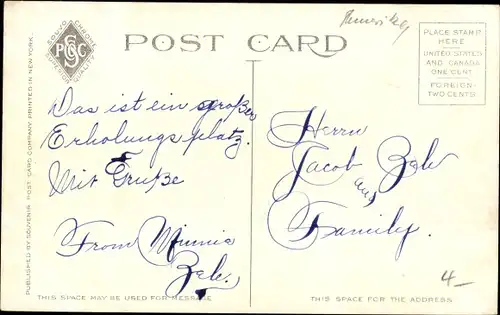 Amerika
SOUVO CHROME
PCSCO
SUPERIOR QUALITY
POST CARD
PLACE STAMP
HERE
UNITED STATES
AND CANADA
ONE CENT
FOREIGN-
TWO CENTS
PUBLISHED BY SOUVENIR POST CARD COMPANY. PRINTED IN NEW YORK.
Das ist ein großer
Erholungsplatz.
Mit Gruße
From Minnie
Zele.
Herrn
Jacob Zele
and
Family.
4-
THIS SPACE MAY BE USED FOR MESSAGE
THIS SPACE FOR THE ADDRESS